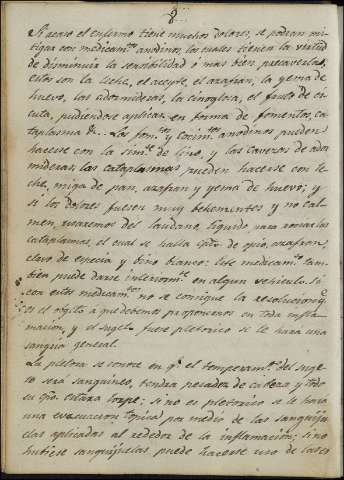 2
Si acaso el enfermo tiene muchos dolores, se podran mi-
tigar con medicam.tos anodinos, los cuales tienen la virtud
de disminuir la sensibilidad ó mas bien precaverlas,
estos son la leche, el aceyte, el azafran, la yema de
huevo, las adormideras, la cinoglosa, el fruto de ci-
cuta, pudiendose aplicar en forma de fomentos, ca-
taplasma &. Los fom.tos y cocim.tos anodinos pueden
hacerse con la sim.te de lino, y las cavezas de ador
mideras; las cataplasmas pueden hacerse con le-
che, miga de pan, azafran y yema de huevo; y
si los dolores fuesen muy behementes y no cal-
men, usaremos del laudano liquido para rociar las
cataplasmas, el cual se halla de opio, azafran,
clavo de especia y bino blanco: este medicam.to tam-
bien puede darse interiorm.te en algun vehiculo. Si
con estos medicam.tos no se consigue la resolucion q.e
es el objeto a q.e debemos proponernos en toda infla-
macion, y el sugeto fuere pletorico se le hará una
sangria general.
La pletora se conoce en q.e el temperam.to del suge-
to será sanguineo, tendra pesadez de cabeza y todo
su estara torpe; si no es pletorico se le hará
una evacuacion topica por medio de las sanguiju-
elas aplicadas al rededor de la inflamacion; si no
hubiese sanguijuelas puede hacerse uso de las